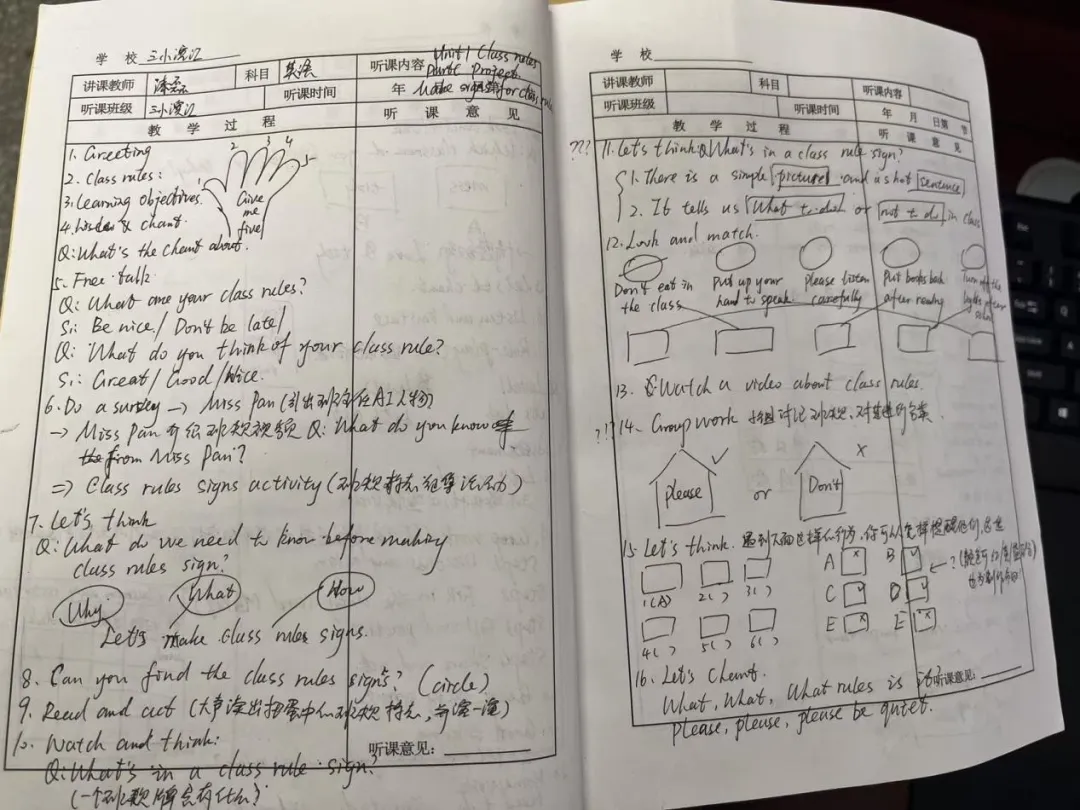 学 校 三小滨江
讲课教师 潘 科目 英语 听课内容 Unit 1 Class rules
Part C Project
听课班级 三小滨江 听课时间 年 Make signs for class rules
教 学 过 程 听 课 意 见
1. Greeting
2. Class rules:
3. Learning objectives.
4. Listen & chant.
2 3 4 5
Give
me
five!
Q: What's the chant about.
5. Free talk
Q: What are your class rules?
S1: Be nice / Don't be late /
Q: What do you think of your class rule?
S1: Great / Good / Nice.
6. Do a survey → Miss Pan (引出班主任AI人物)
→ Miss Pan 介绍班规视频 Q: What do you know
from Miss Pan?
⇒ Class rules signs activity (班规标志征集活动)
7. Let's think
Q: What do we need to know before making
class rules sign?
Why What How
Let's make class rules signs.
8. Can you find the class rules signs? (circle)
9. Read and act (大声读出扭蛋中的班规标志,并演一演)
10. Watch and think:
Q: What's in a class rule sign?
(一个班规牌会有什么?
听课意见:
学 校
讲课教师 科目 听课内容
听课班级 听课时间 年 月 日第 节
教 学 过 程 听 课 意 见
??? 11. Let's think: Q What's in a class rule sign?
1. There is a simple picture and a short sentence
2. It tells us What to do or not to do in class
12. Look and match.
Don't eat in
the class
Put up your
hand to speak
please listen
carefully
Put books back
after reading
Turn off the
lights after
13. Watch a video about class rules.
?!? 14. Group work 小组讨论班规,对其进行分类
please or Don't
15. Let's think. 遇到下面这样的行为,你可以怎样提醒他们
1(A) 2( ) 3( )
4( ) 5( ) 6( )
A × B √
C √ D √
E × E ×
16. Let's Chant.
What, What, What rules is it?
听课意见:
please, please, please be quiet.